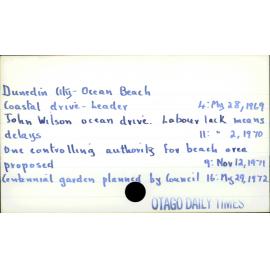 Dunedin City - Ocean Beach
Coastal drive - Leader 4: My 28, 1969
John Wilson ocean drive. Labour lack means
delays 11: " 2, 1970
One controlling authority for beach area
proposed 9: Nov 12, 1971
Centennial garden planned by Council 16: My 29, 1972
OTAGO DAILY TIMES